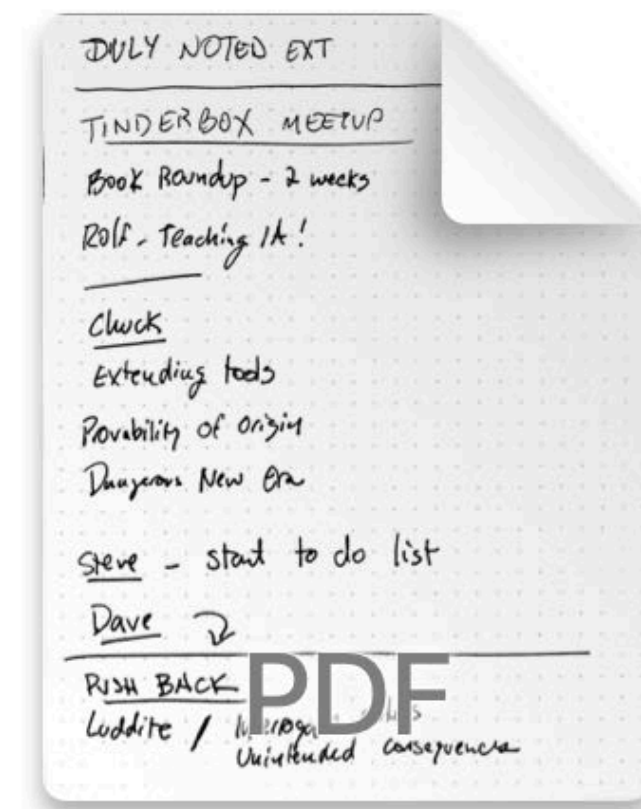 DULY NOTED EXT
TINDERBOX MEETUP
Book Roundup - 2 weeks
Rolf - Teaching IA!
Chuck
Extending tools
Provability of Origin
Dangerous New Era
Steve - start to do list
Dave
PUSH BACK
Luddite /
Unintended consequences
PDF